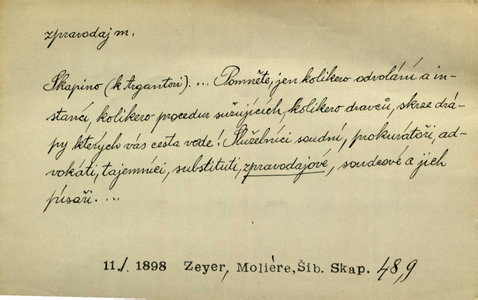 zpravodaj m.
Skapino (k Argantovi). ... Pomněte, jen kolikero odvolání a in-
stancí, kolikero procedur sužujících, kolikero dravců, skrze drá-
py kterých vás cesta vede! Služebníci soudní, prokurátoři, ad-
vokáti, tajemníci, substituti, zpravodajové, soudcové a jich
písaři. ...
11./ 1898 Zeyer, Molière, Šib. Skap. 48,9